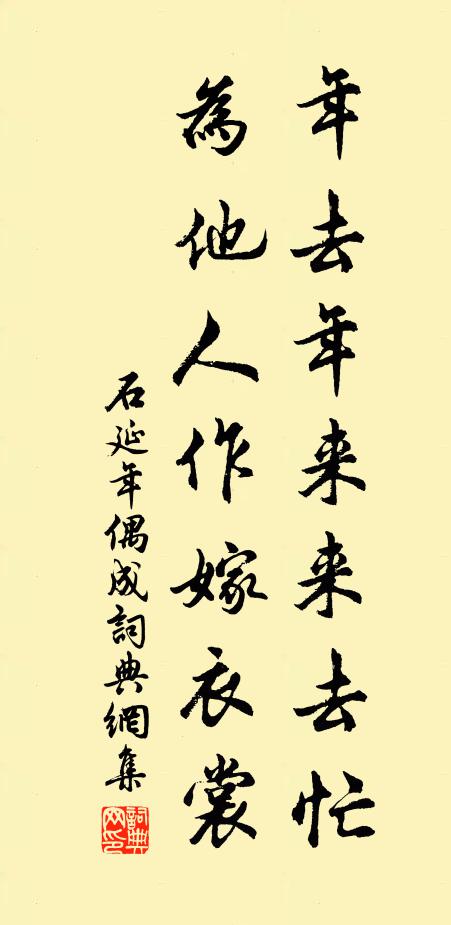 年去年来来去忙
為他人作嫁衣裳
石延年偶成詞典網集
詞典网印